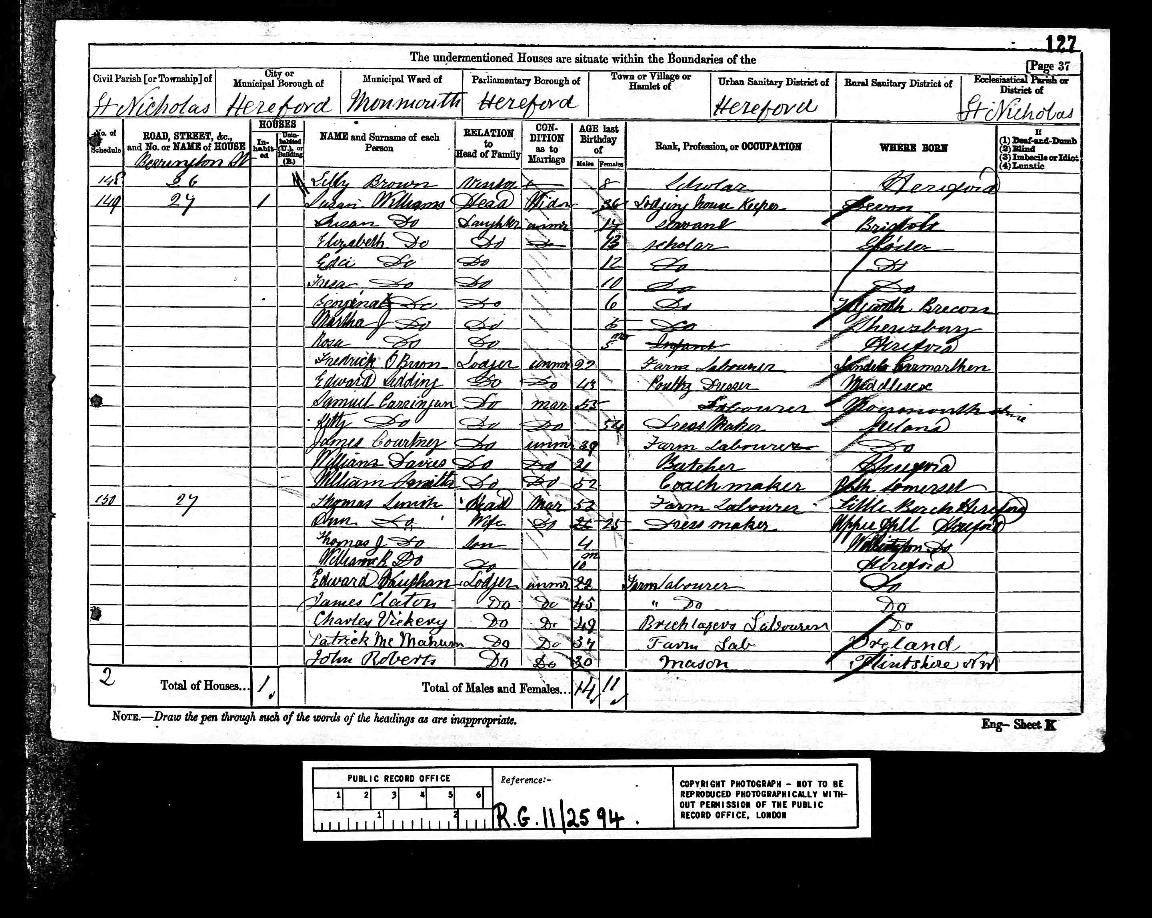 127
The undermentioned Houses are situate within the Boundaries of the
[Page 37
Civil Parish [or Township] of
City or Municipal Borough of
Municipal Ward of
Parliamentary Borough of
Town or Village or Hamlet of
Urban Sanitary District of
Rural Sanitary District of
Ecclesiastical Parish or District of
St Nicholas Hereford Monmouth Hereford Hereford St Nicholas
No. of Schedule
ROAD, STREET, &c., and No. or NAME of HOUSE
HOUSES
In-habit-ed
Unin-habited (U.), or Building (B.)
NAME and Surname of each Person
RELATION to Head of Family
CON-DITION as to Marriage
AGE last Birthday of
Males Females
Rank, Profession, or OCCUPATION
WHERE BORN
If
(1) Deaf-and-Dumb
(2) Blind
(3) Imbecile or Idiot
(4) Lunatic
Berrington St
148 26 Lilly Brown Visitor 8 Scholar Hereford
149 27 1 Susan Williams Head Widow 36 Lodging house Keeper Devon
Susan Do Daughter unmr 17 servant Bristol
Elizabeth Do Do Do 13 scholar
Do Do 12 Do Do
Do Do 10 Do Do
Do Do 6 Do Brecon
Martha J Do Do 5 Do Shrewsbury
Rosa Do Do 5 mo Infant Hereford
Fredrick O'Brion Lodger unmr Farm Labourer Carmarthen
Edward Do Do 43 Dresser Middlesex
Samuel Do mar 55 Labourer
Do Do Do 54 Dress Maker Ireland
James Courtney Do unmr 39 Farm Labourer Do
William Davies Do Do 21 Butcher Hereford
William Smith Do Do 52 Coach maker Somerset
150 27 Thomas Smith Head Mar 53 Farm Labourer Little Birch Hereford
Ann Do Wife Do 25 Dress maker Hereford
Thomas J Do Son 4 Do
William R Do Do 10 m Hereford
Edward Lodger unmr 22 Farm labourer Do
James Claton Do Do 45 " Do Do
Charles Vickery Do Do 49 Bricklayers Labourer Do
Patrick Mc Mahum Do Do 34 Farm Lab Ireland
John Roberts Do Do 30 Mason Flintshire NW
2 Total of Houses... 1 Total of Males and Females... 14 11
NOTE.—Draw the pen through such of the words of the headings as are inappropriate.
Eng— Sheet K
PUBLIC RECORD OFFICE
1 2 3 4 5 6
1 2
Reference:-
R.G. 11/2594.
COPYRIGHT PHOTOGRAPH - NOT TO BE
REPRODUCED PHOTOGRAPHICALLY WITH-
OUT PERMISSION OF THE PUBLIC
RECORD OFFICE, LONDON